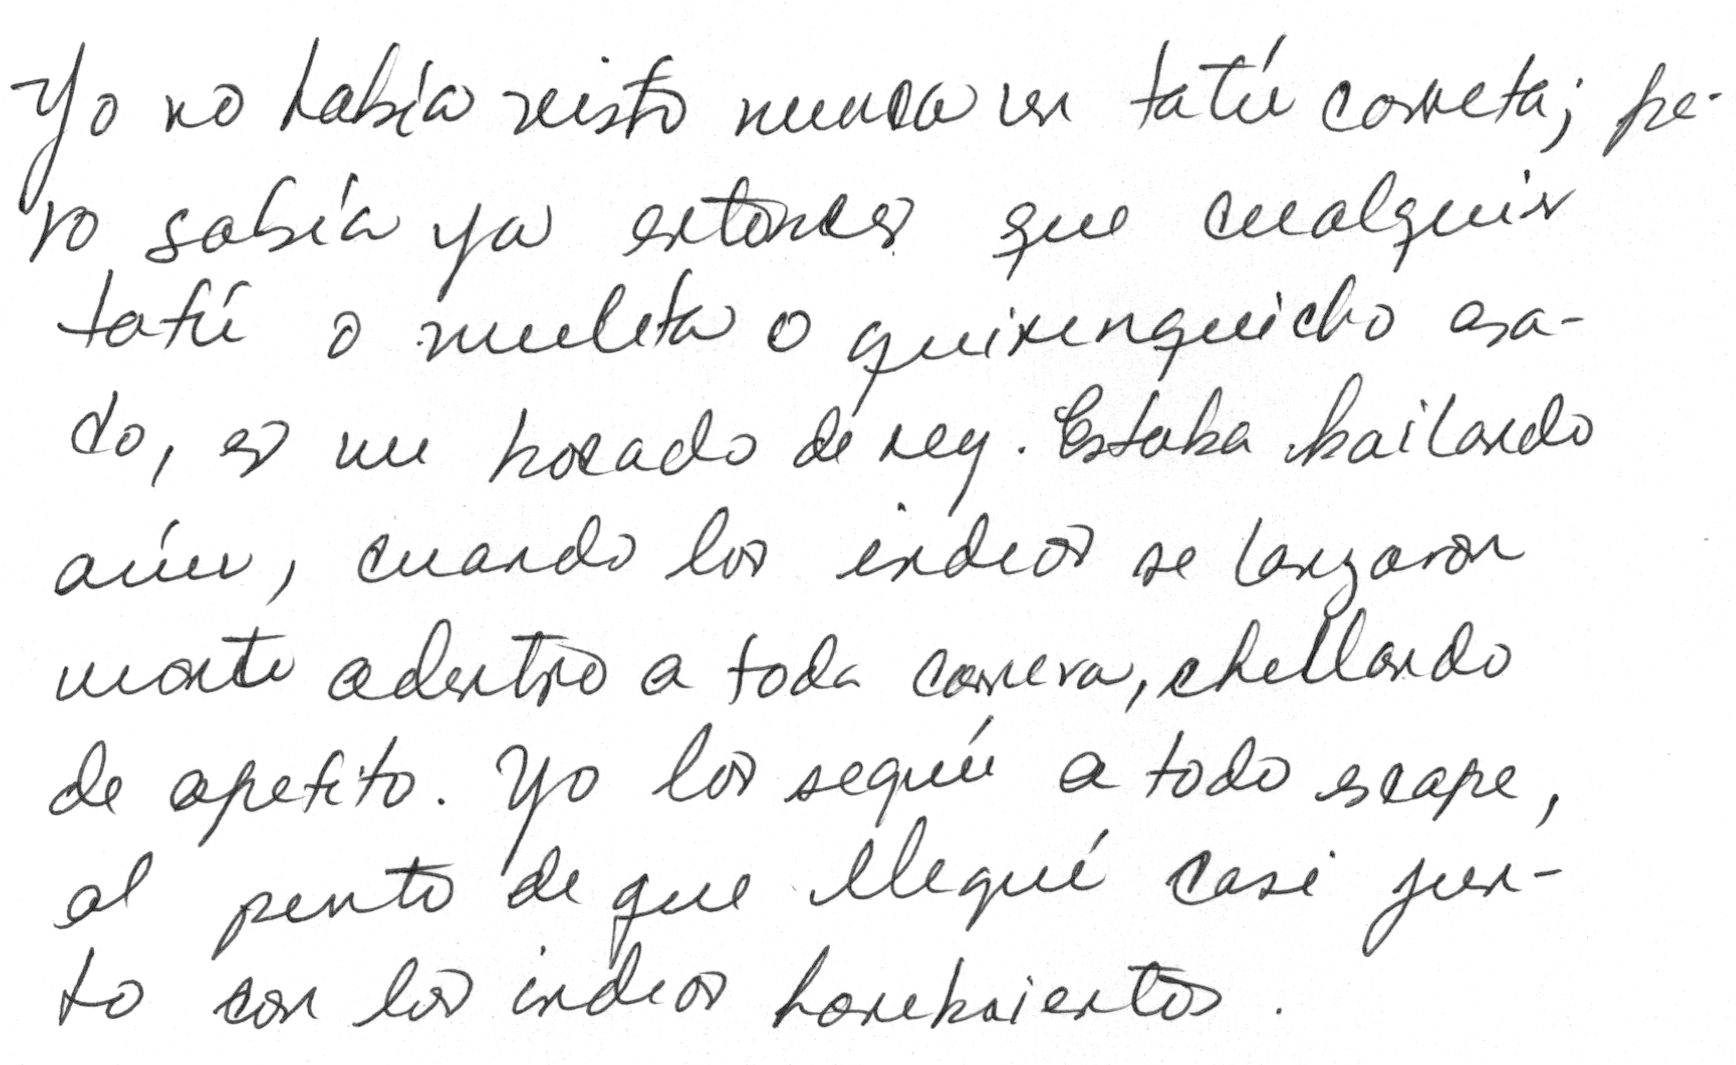 Yo no había visto nunca un tatú carreta; pe-
ro sabía ya entonces que cualquier
tatú o mulita o quirquincho asa-
do, es un bocado de rey. Estaba bailando
aún, cuando los indios se lanzaron
monte adentro a toda carrera, chillando
de apetito. Yo los seguí a todo escape,
al punto de que llegué casi jun-
to con los indios hambrientos.